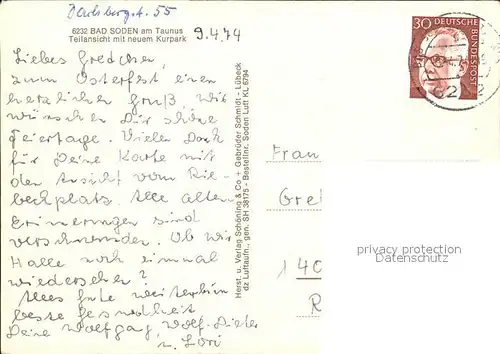 Dachsbergstr. 55
6232 BAD SODEN am Taunus
Teilansicht mit neuem Kurpark
9.4.74
Liebes Gredchen,
zum Osterfest einen
herzlichen Gruß, wir
wünschen Dir schöne
Feiertage. Vielen Dank
für Deine Karte mit
der Ansicht vom Rie-
beckplatz. Alle alten
Erinnerungen sind
verschwunden. Ob wir
Halle noch einmal
wiedersehen?
Alles Gute weiterhin
beste Gesundheit
Deine Wolfgang, Wolf-Dieter
u. Lori
Herst. u. Verlag Schöning & Co + Gebrüder Schmidt - Lübeck
dz Luftaufn., gen. SH 38175 - Bestellnr. Soden Luft KL 6794
30 DEUTSCHE
BUNDESPOST
Frau
Gre
140
R
privacy protection
Datenschutz